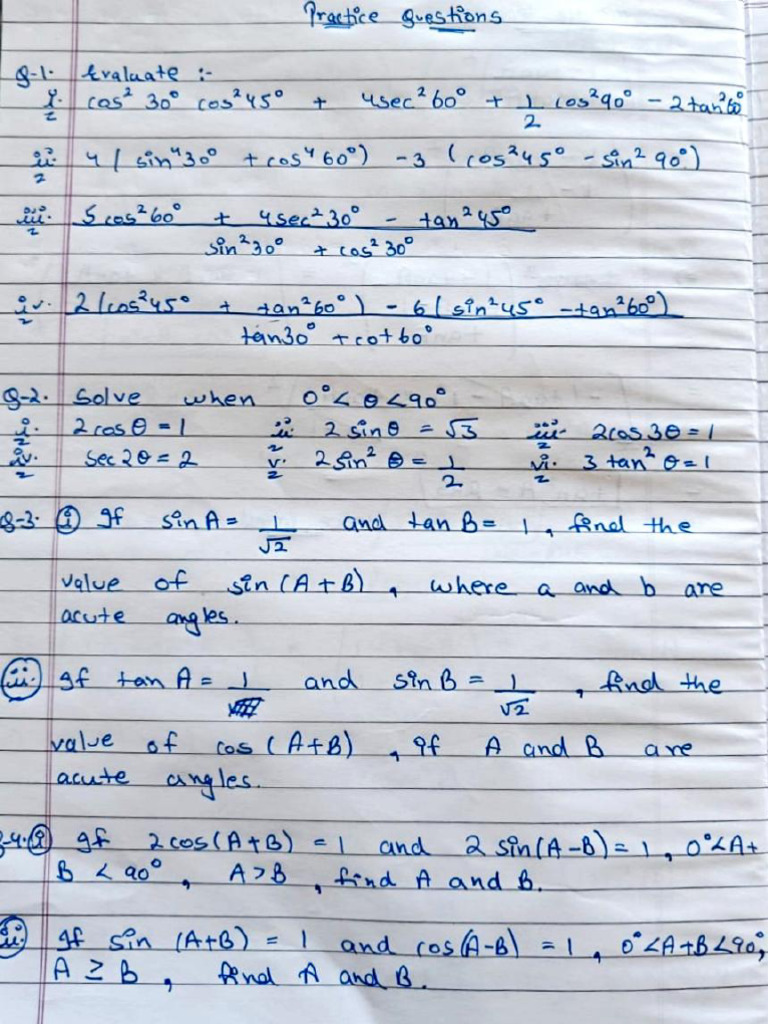 Practice Questions
Q-1. Evaluate :-
i. cos² 30° cos²45° + 4sec²60° + 1/2 cos²90° - 2tan²60°
ii. 4 ( sin⁴30° + cos⁴60°) - 3 (cos²45° - sin² 90°)
iii. 5cos²60° + 4sec²30° - tan²45°
sin²30° + cos²30°
iv. 2(cos²45° + tan²60°) - 6(sin²45° - tan²60°)
tan30° + cot60°
Q-2. Solve when 0° < θ < 90°
i. 2cosθ = 1 ii. 2 sinθ = √3 iii. 2cos3θ = 1
iv. sec2θ = 2 v. 2sin² θ = 1/2 vi. 3 tan² θ = 1
Q-3. (i) If sinA = 1/√2 and tanB = 1, find the
value of sin(A+B), where a and b are
acute angles.
(ii.) If tan A = 1 and sinB = 1/√2, find the
value of cos (A+B), if A and B are
acute angles.
Q-4.(i) If 2cos(A+B) = 1 and 2 sin(A-B) = 1, 0°<A+
B < 90°, A>B, find A and B.
(ii.) If sin (A+B) = 1 and cos(A-B) = 1, 0°<A+B<90°,
A ≥ B, find A and B.